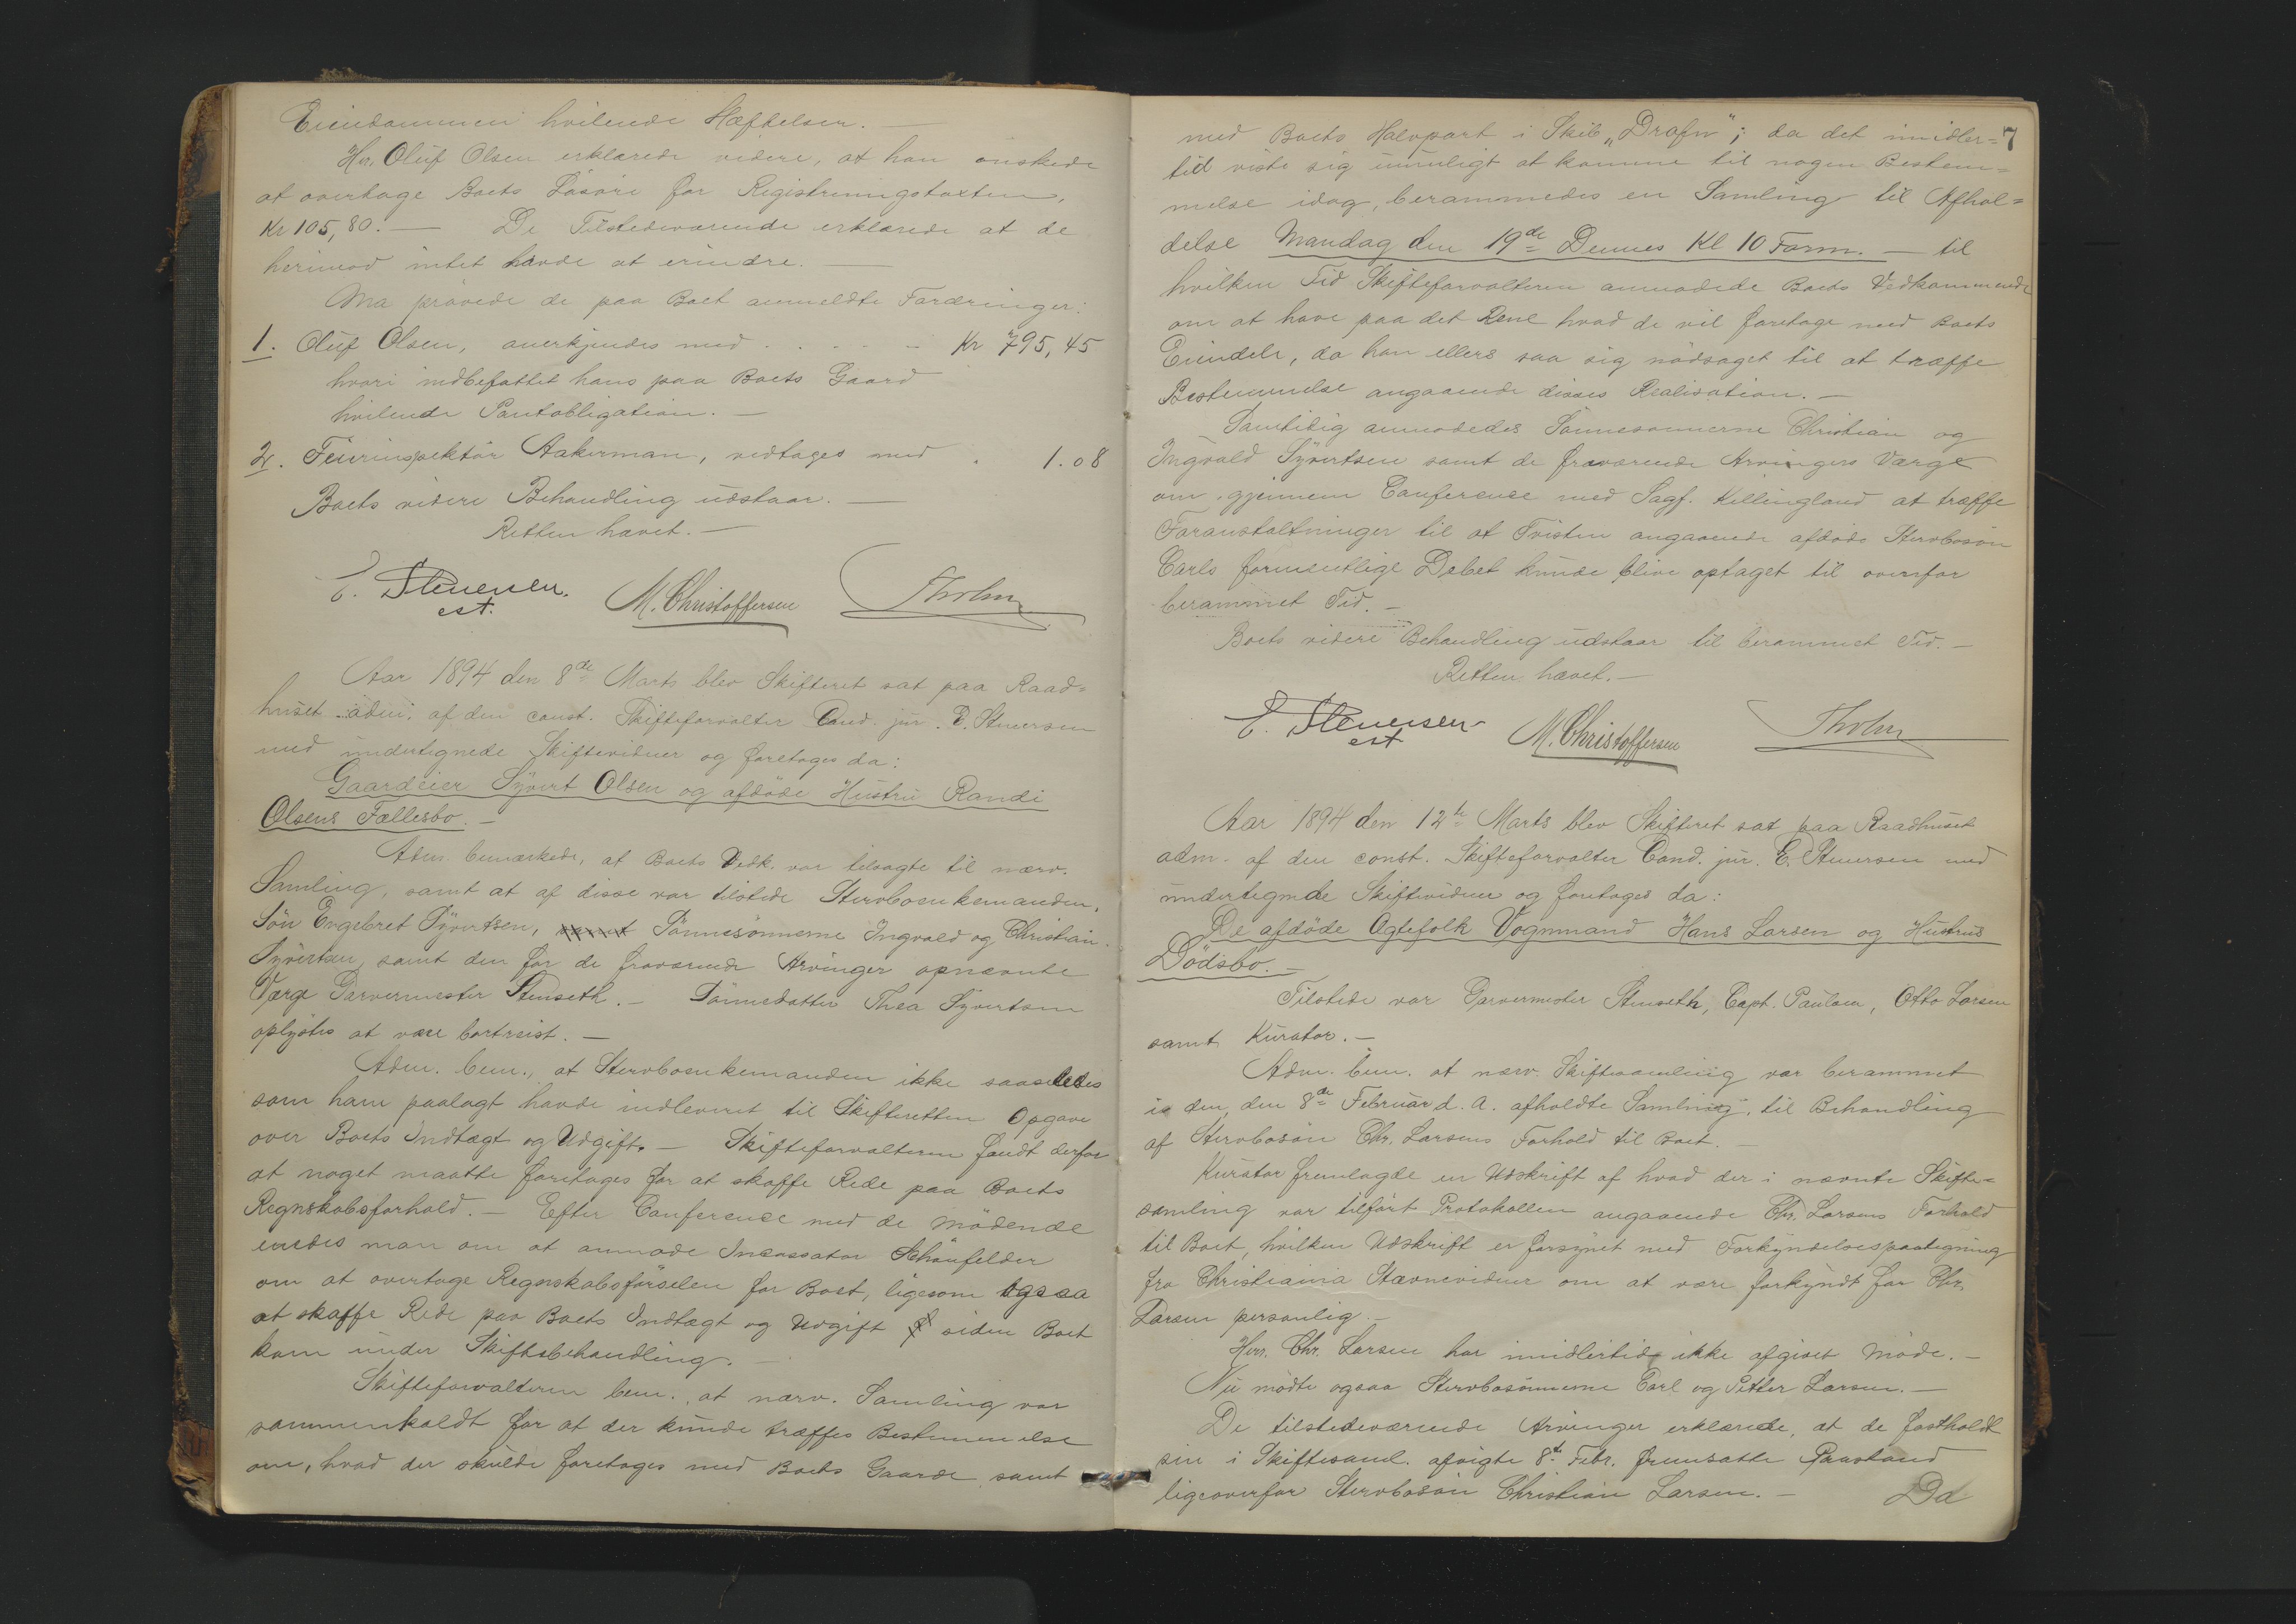 Eiendommen hvilende Hæftelser. —
Hr. Oluf Olsen erklærede videre, at han ønskede
at overtage Boets Løsøre for Registreringstaxten,
Kr 105,80. — De Tilstedeværende erklærede at de
herimod intet havde at erindre. —
Ma prøvede de paa Boet anmeldte Fordringer:
1. Oluf Olsen, anerkjendes med . . . . . Kr 795,45
hvori indbefattet hans paa Boets Gaard
hvilende Pantobligation. —
2. Feierinspektør Aakerman, vedtages med . 1.08
Boets videre Behandling udstaar. —
Retten hævet. —
E. Stenersen.
cst.
M. Christoffersen
Tholm
Aar 1894 den 8de Marts blev Skifteret sat paa Raad=
huset adm. af den const. Skifteforvalter Cand. jur. E. Stenersen
med undertegnede Skiftevidner og foretoges da:
Gaardeier Syvert Olsen og afdøde Hustru Randi
Olsens Fællesbo. —
Adm. bemærkede, at Boets Vedk. var tilsagte til nærv.
Samling, samt at af disse var tilstede Stervboenkemanden,
Søn Engebret Syvertsen, Sønnesønnerne Ingvald og Christian
Syvertsen, samt den for de fraværende Arvinger opnævnte
Værge Garvermester Stenseth. — Sønnedatter Thea Syvertsen
oplystes at være bortreist. —
Adm. bem., at Stervboenkemanden ikke saaledes
som ham paalagt havde indleveret til Skifteretten Opgave
over Boets Indtægt og Udgift. — Skifteforvalteren fandt derfor
at noget maatte foretages for at skaffe Rede paa Boets
Regnskabsforhold. — Efter Conference med de mødende
enedes man om at anmode Incassator Schønfelder
om at overtage Regnskabsførselen for Boet, ligesom ogsaa
at skaffe Rede paa Boets Indtægt og Udgift siden Boet
kom under Skiftebehandling. —
Skifteforvalteren bem. at nærv. Samling var
sammenkaldt for at der kunde træffes Bestemmelse
om, hvad der skulde foretages med Boets Gaarde samt
7
med Boets Halvpart i Skib „Drafn"; da det imidler=
tid viste sig umuligt at komme til nogen Bestem=
melse idag, berammedes en Samling til Afhol=
delse Mandag den 19de Dennes Kl 10 Form. — til
hvilken Tid Skifteforvalteren anmodede Boets Vedkommende
om at have paa det Rene hvad de vil foretage med Boets
Eiendele, da han ellers saa sig nødsaget til at træffe
Bestemmelse angaaende disses Realisation. —
Samtidig anmodedes Sønnesønnerne Christian og
Ingvald Syvertsen samt de fraværende Arvingers Værge
om gjennem Conference med Sagf. Killingland at træffe
Foranstaltninger til at Tvisten angaaende afdøde Stervbosøn
Carls formentlige Debet kunde blive optaget til ovenfor
berammet Tid. —
Boets videre Behandling udstaar til berammet Tid. —
Retten hævet. —
E. Stenersen
cst
M. Christoffersen
Tholm
Aar 1894 den 12te Marts blev Skifteret sat paa Raadhuset
adm. af den const. Skifteforvalter Cand. jur. E. Stenersen med
undertegnede Skiftevidner og foretoges da:
De afdøde Ægtefolk Vognmand Hans Larsen og Hustrus
Dødsbo. —
Tilstede var Garvermester Stenseth, Capt. Paulsen, Otto Larsen
samt Kurator. —
Adm. bem. at nærv. Skiftesamling var berammet
i den, den 8de Februar d. A. afholdte Samling, til Behandling
af Stervbosøn Chr. Larsens Forhold til Boet. —
Kurator fremlagde en Udskrift af hvad der i nævnte Skifte=
samling var tilført Protokollen angaaende Chr. Larsens Forhold
til Boet, hvilken Udskrift er forsynet med Forkyndelsespaategning
fra Christiania Stævnevidner om at være forkyndt for Chr.
Larsen personlig. —
Herr. Chr. Larsen har imidlertid ikke afgivet Møde. —
Nu mødte ogsaa Stervbosønnerne Carl og Petter Larsen. —
De tilstedeværende Arvinger erklærede, at de fastholdt
sin i Skiftesaml. afvigte 8de Febr. fremsatte Paastand
ligeoverfor Stervbosøn Christian Larsen. — Da